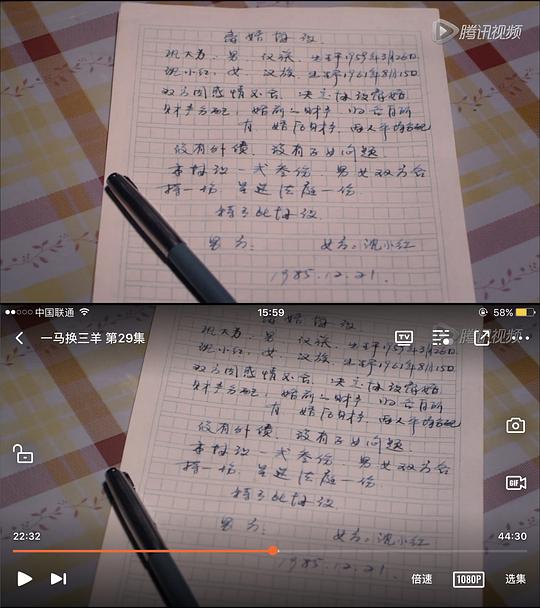 腾讯视频
离婚协议
沈大为，男，汉族，生于1959年3月26日
沈小红，女，汉族，生于1961年8月15日
双方因感情不合，决定协议离婚
财产分配，婚前财产，归各自所
有，婚后财产，两人平均分配
没有外债，没有子女问题。
本协议一式叁份，男女双方各
持一份，呈送法庭一份。
特立此协议
男方： 女方：沈小红
1985.12.21.
中国联通 15:59 58%
一马换三羊 第29集
腾讯视频
离婚协议
沈大为，男，汉族，生于1959年3月26日
沈小红，女，汉族，生于1961年8月15日
双方因感情不合，决定协议离婚
财产分配，婚前财产，归各自所
有，婚后财产，两人平均分配
没有外债，没有子女问题。
本协议一式叁份，男女双方各
持一份，呈送法庭一份
特立此协议
男方： 女方：沈小红
1985.12.21.
GIF
22:32 44:30
倍速 1080P 选集